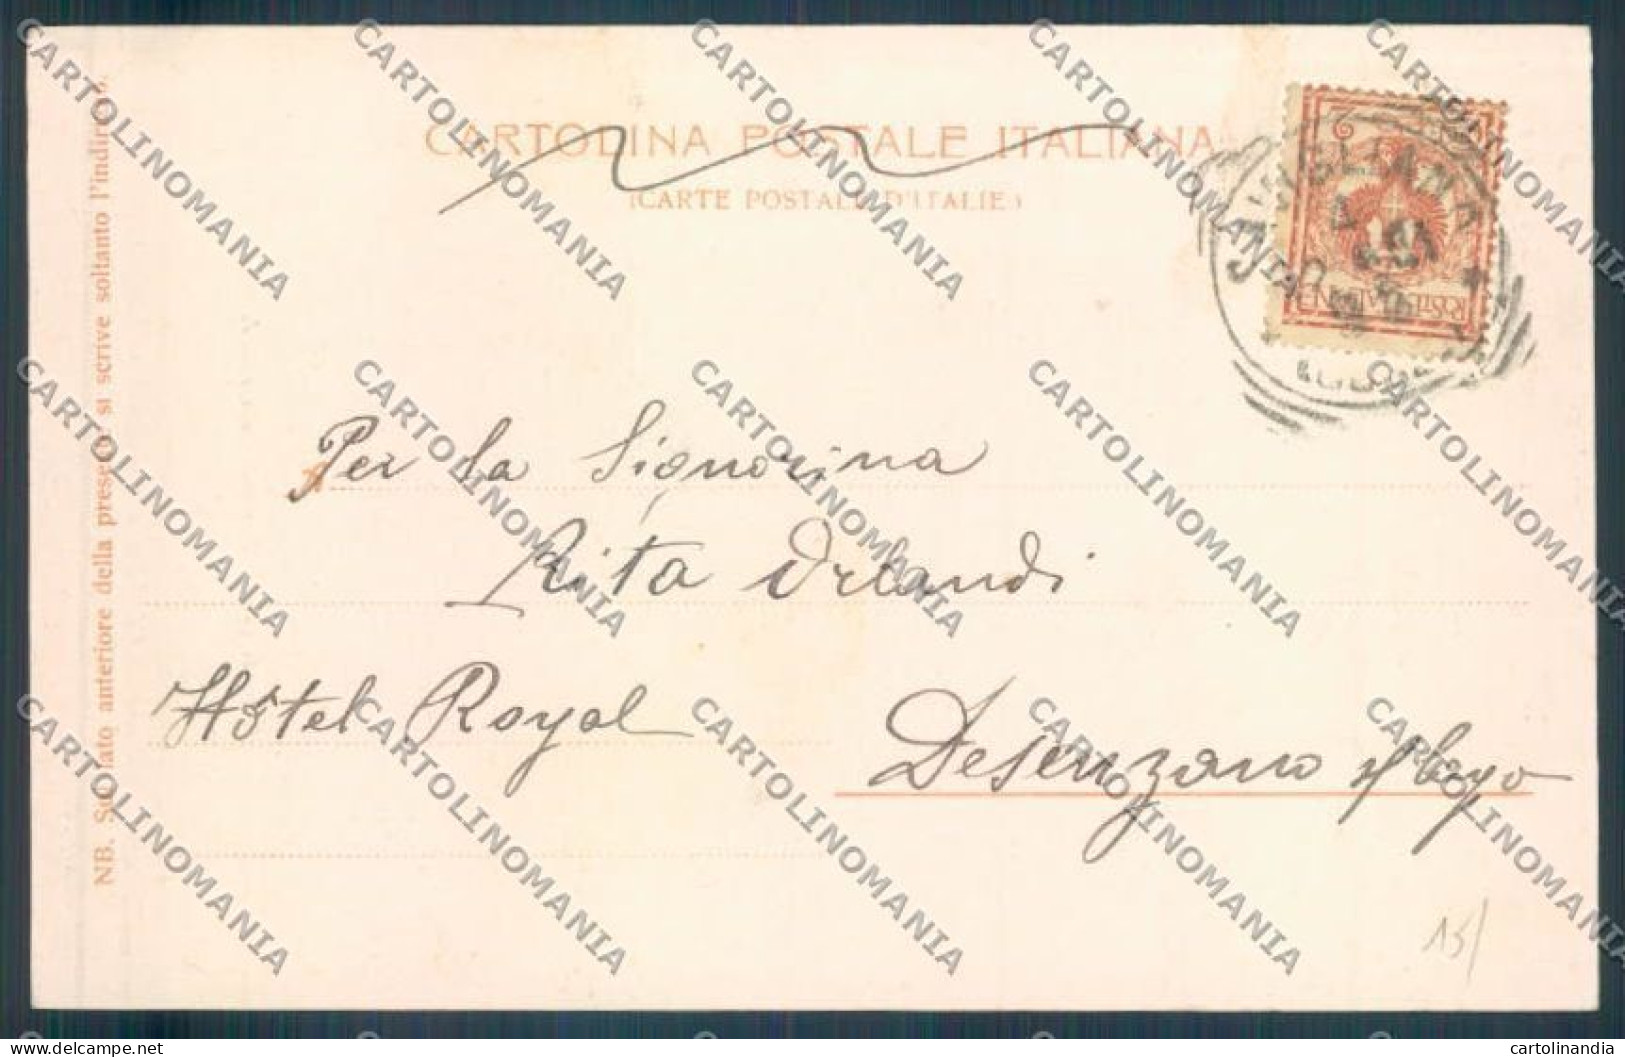 CARTOLINA POSTALE ITALIANA
(CARTE POSTALE D'ITALIE)
NB. Sul lato anteriore della presente si scrive soltanto l'indirizzo.
Per la Signorina
Rita Orlandi
Hôtel Royal
Desenzano s/lago
15/
CARTOLINOMANIA
https://www.delcampe.net
cartolinandia